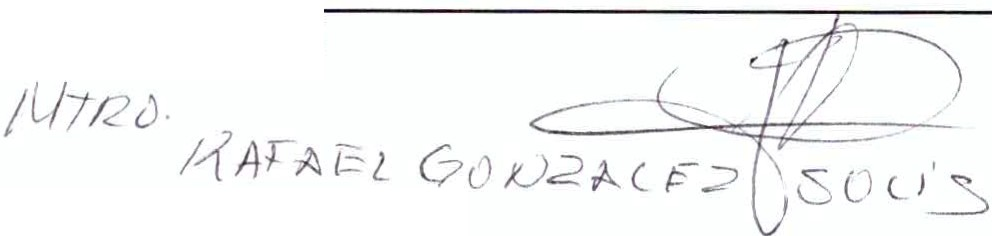 MTRO.
RAFAEL GONZALEZ SOLÍS